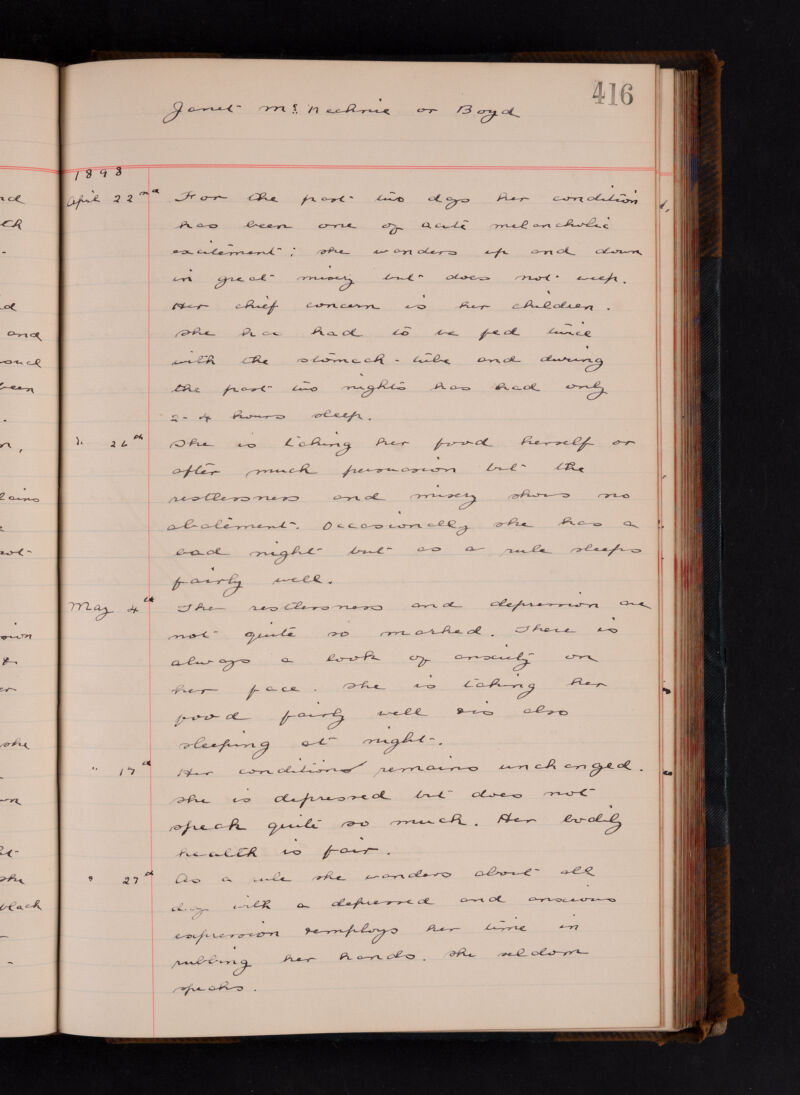 416
Janet McKechnie or Boyd
1898
April 22nd For the past two days her condition
has been one of acute melancholic
excitement; she wanders up and down
in great misery but does not weep.
Her chief concern is her children.
She has had to be fed twice
with the stomach-tube and during
the past two nights has had only
2-4 hours sleep.
" 26th She is taking her food herself or
after much persuasion but the
restlessness and misery shows no
abatement. Occasionally she has a
bad night but as a rule sleeps
fairly well.
May 4th The restlessness and depression are
not quite so marked. There is
always a look of anxiety on
her face. She is taking her
food fairly well & is also
sleeping at night.
" 17th Her condition remains unchanged.
She is depressed but does not
speak quite so much. Her bodily
health is fair.
" 27th As a rule she wanders about all
day with a depressed and anxious
expression & employs her time in
rubbing her hands. She seldom
speaks.